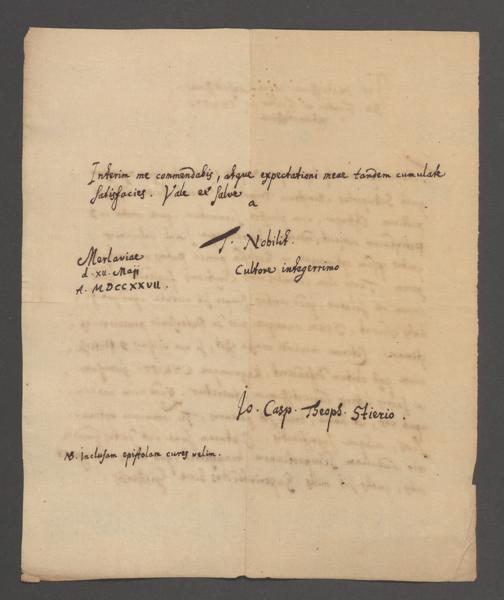 Interim me commendabis, atque expectationi meae tandem cumulate
satisfacies. Vale et salve
a
T. Nobilit.
Cultore integerrimo
Merlaviae
d. XII. Maji
A. MDCCXXVII.
Jo. Casp. Theoph. Stierio.
NB. inclusam epistolam cures velim.